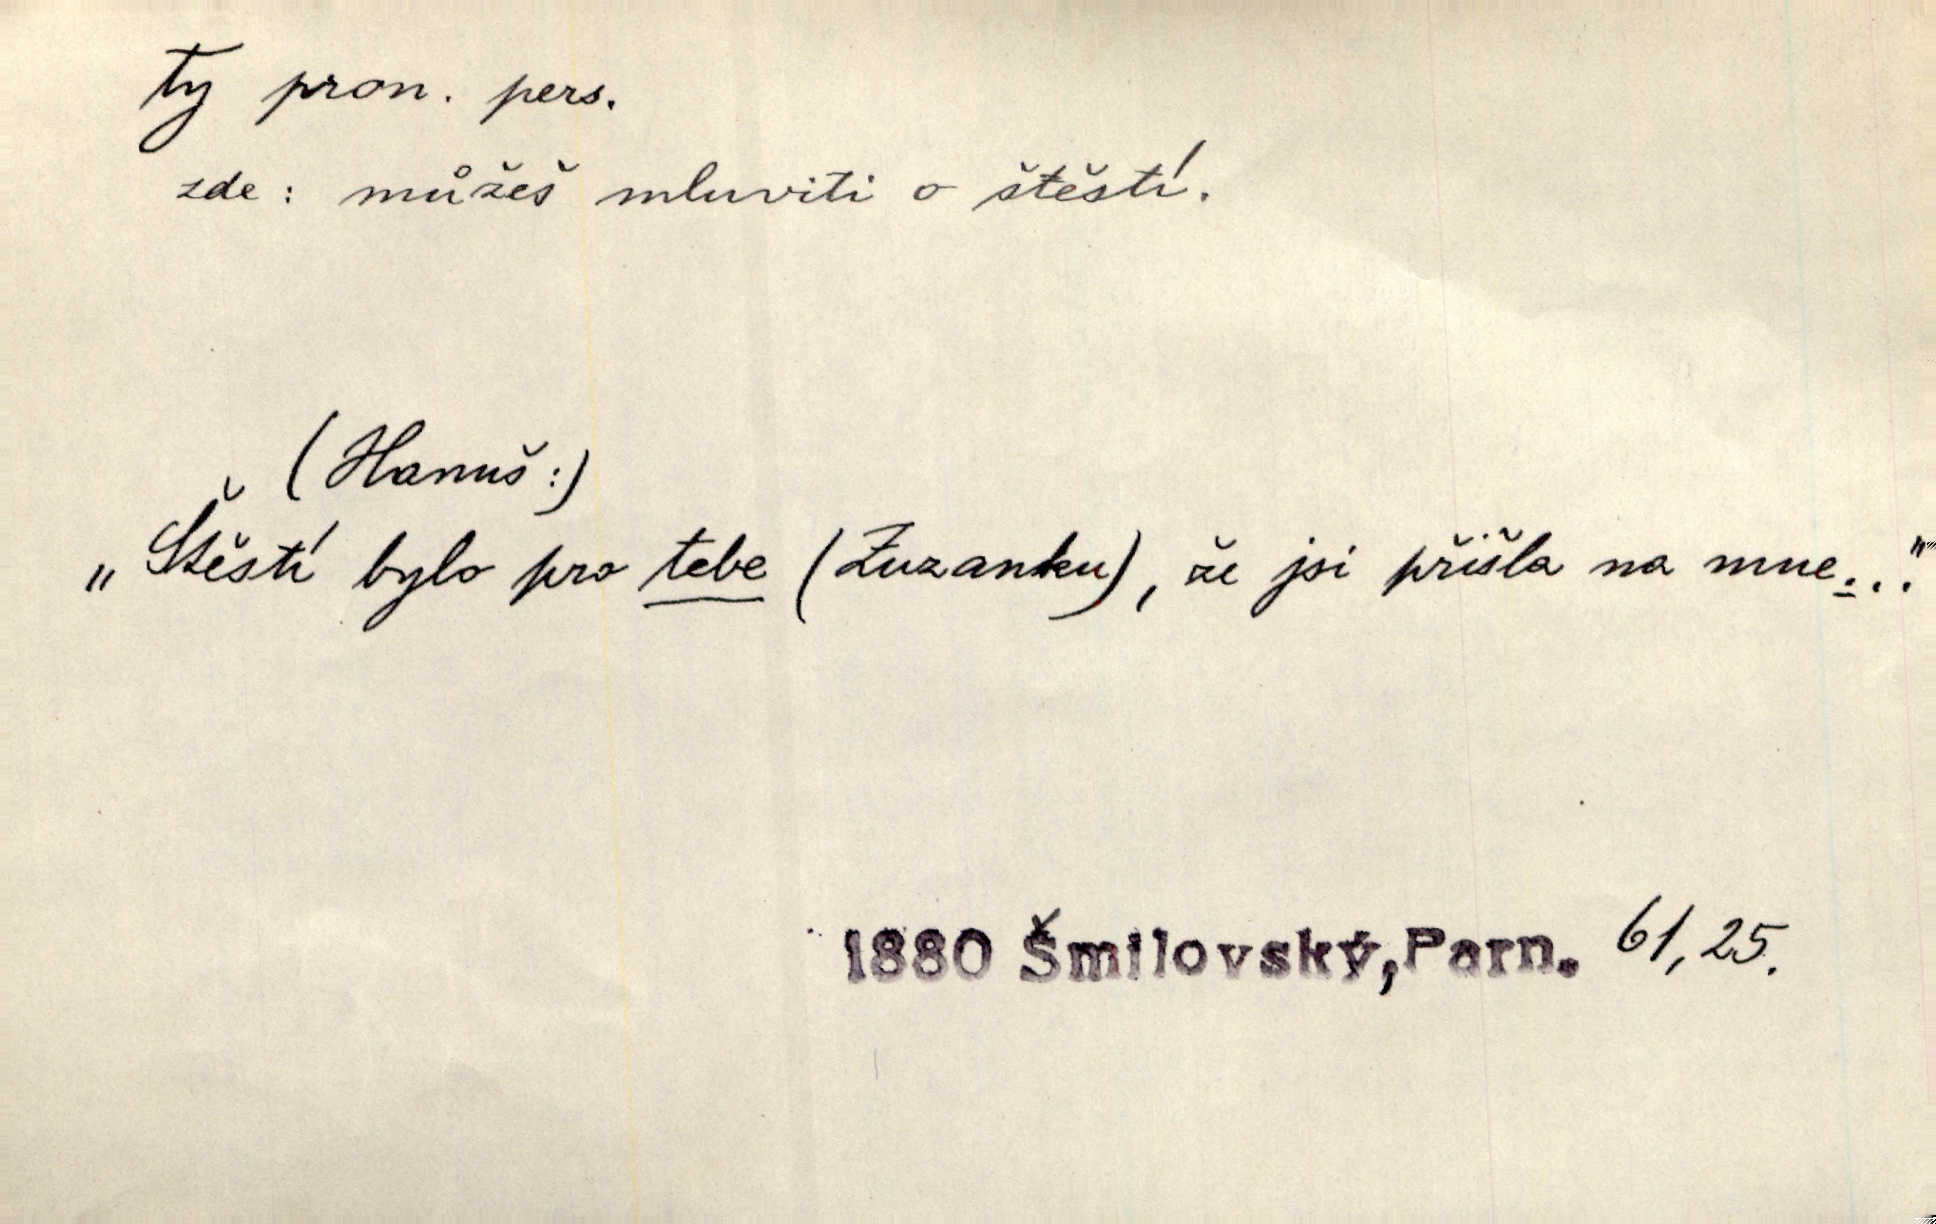 ty pron. pers.
zde: můžeš mluviti o štěstí.
(Hanuš:)
„Štěstí bylo pro tebe (Zuzanku), že jsi přišla na mne...“
1880 Šmilovský, Parn. 61, 25.